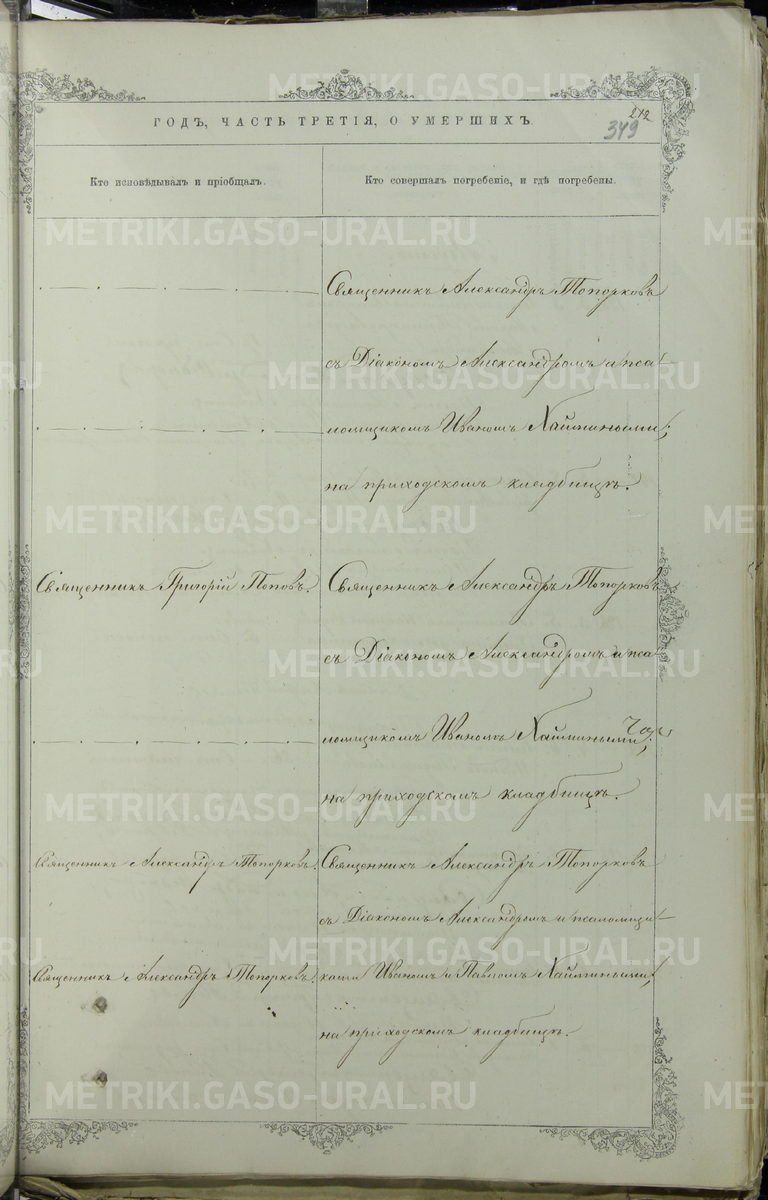 212
349
ГОДЪ, ЧАСТЬ ТРЕТІЯ, О УМЕРШИХЪ.
Кто исповѣдывалъ и пріобщалъ.
Кто совершалъ погребеніе, и гдѣ погребены.
Священникъ Александръ Топорковъ
съ Діакономъ Александромъ и пса-
ломщикомъ Иваномъ Наймиными;
на приходскомъ кладбищѣ.
Священникъ Григорій Поповъ.
Священникъ Александръ Топорковъ
съ Діакономъ Александромъ и пса
ломщикомъ Иваномъ Наймиными;
на приходскомъ кладбищѣ.
Священникъ Александръ Топорковъ.
Священникъ Александръ Топорковъ
съ Діакономъ Александромъ и псаломщи-
Священникъ Александръ Топорковъ.
ками Иваномъ и Павломъ Наймиными;
на приходскомъ кладбищѣ.
METRIKI.GASO-URAL.RU